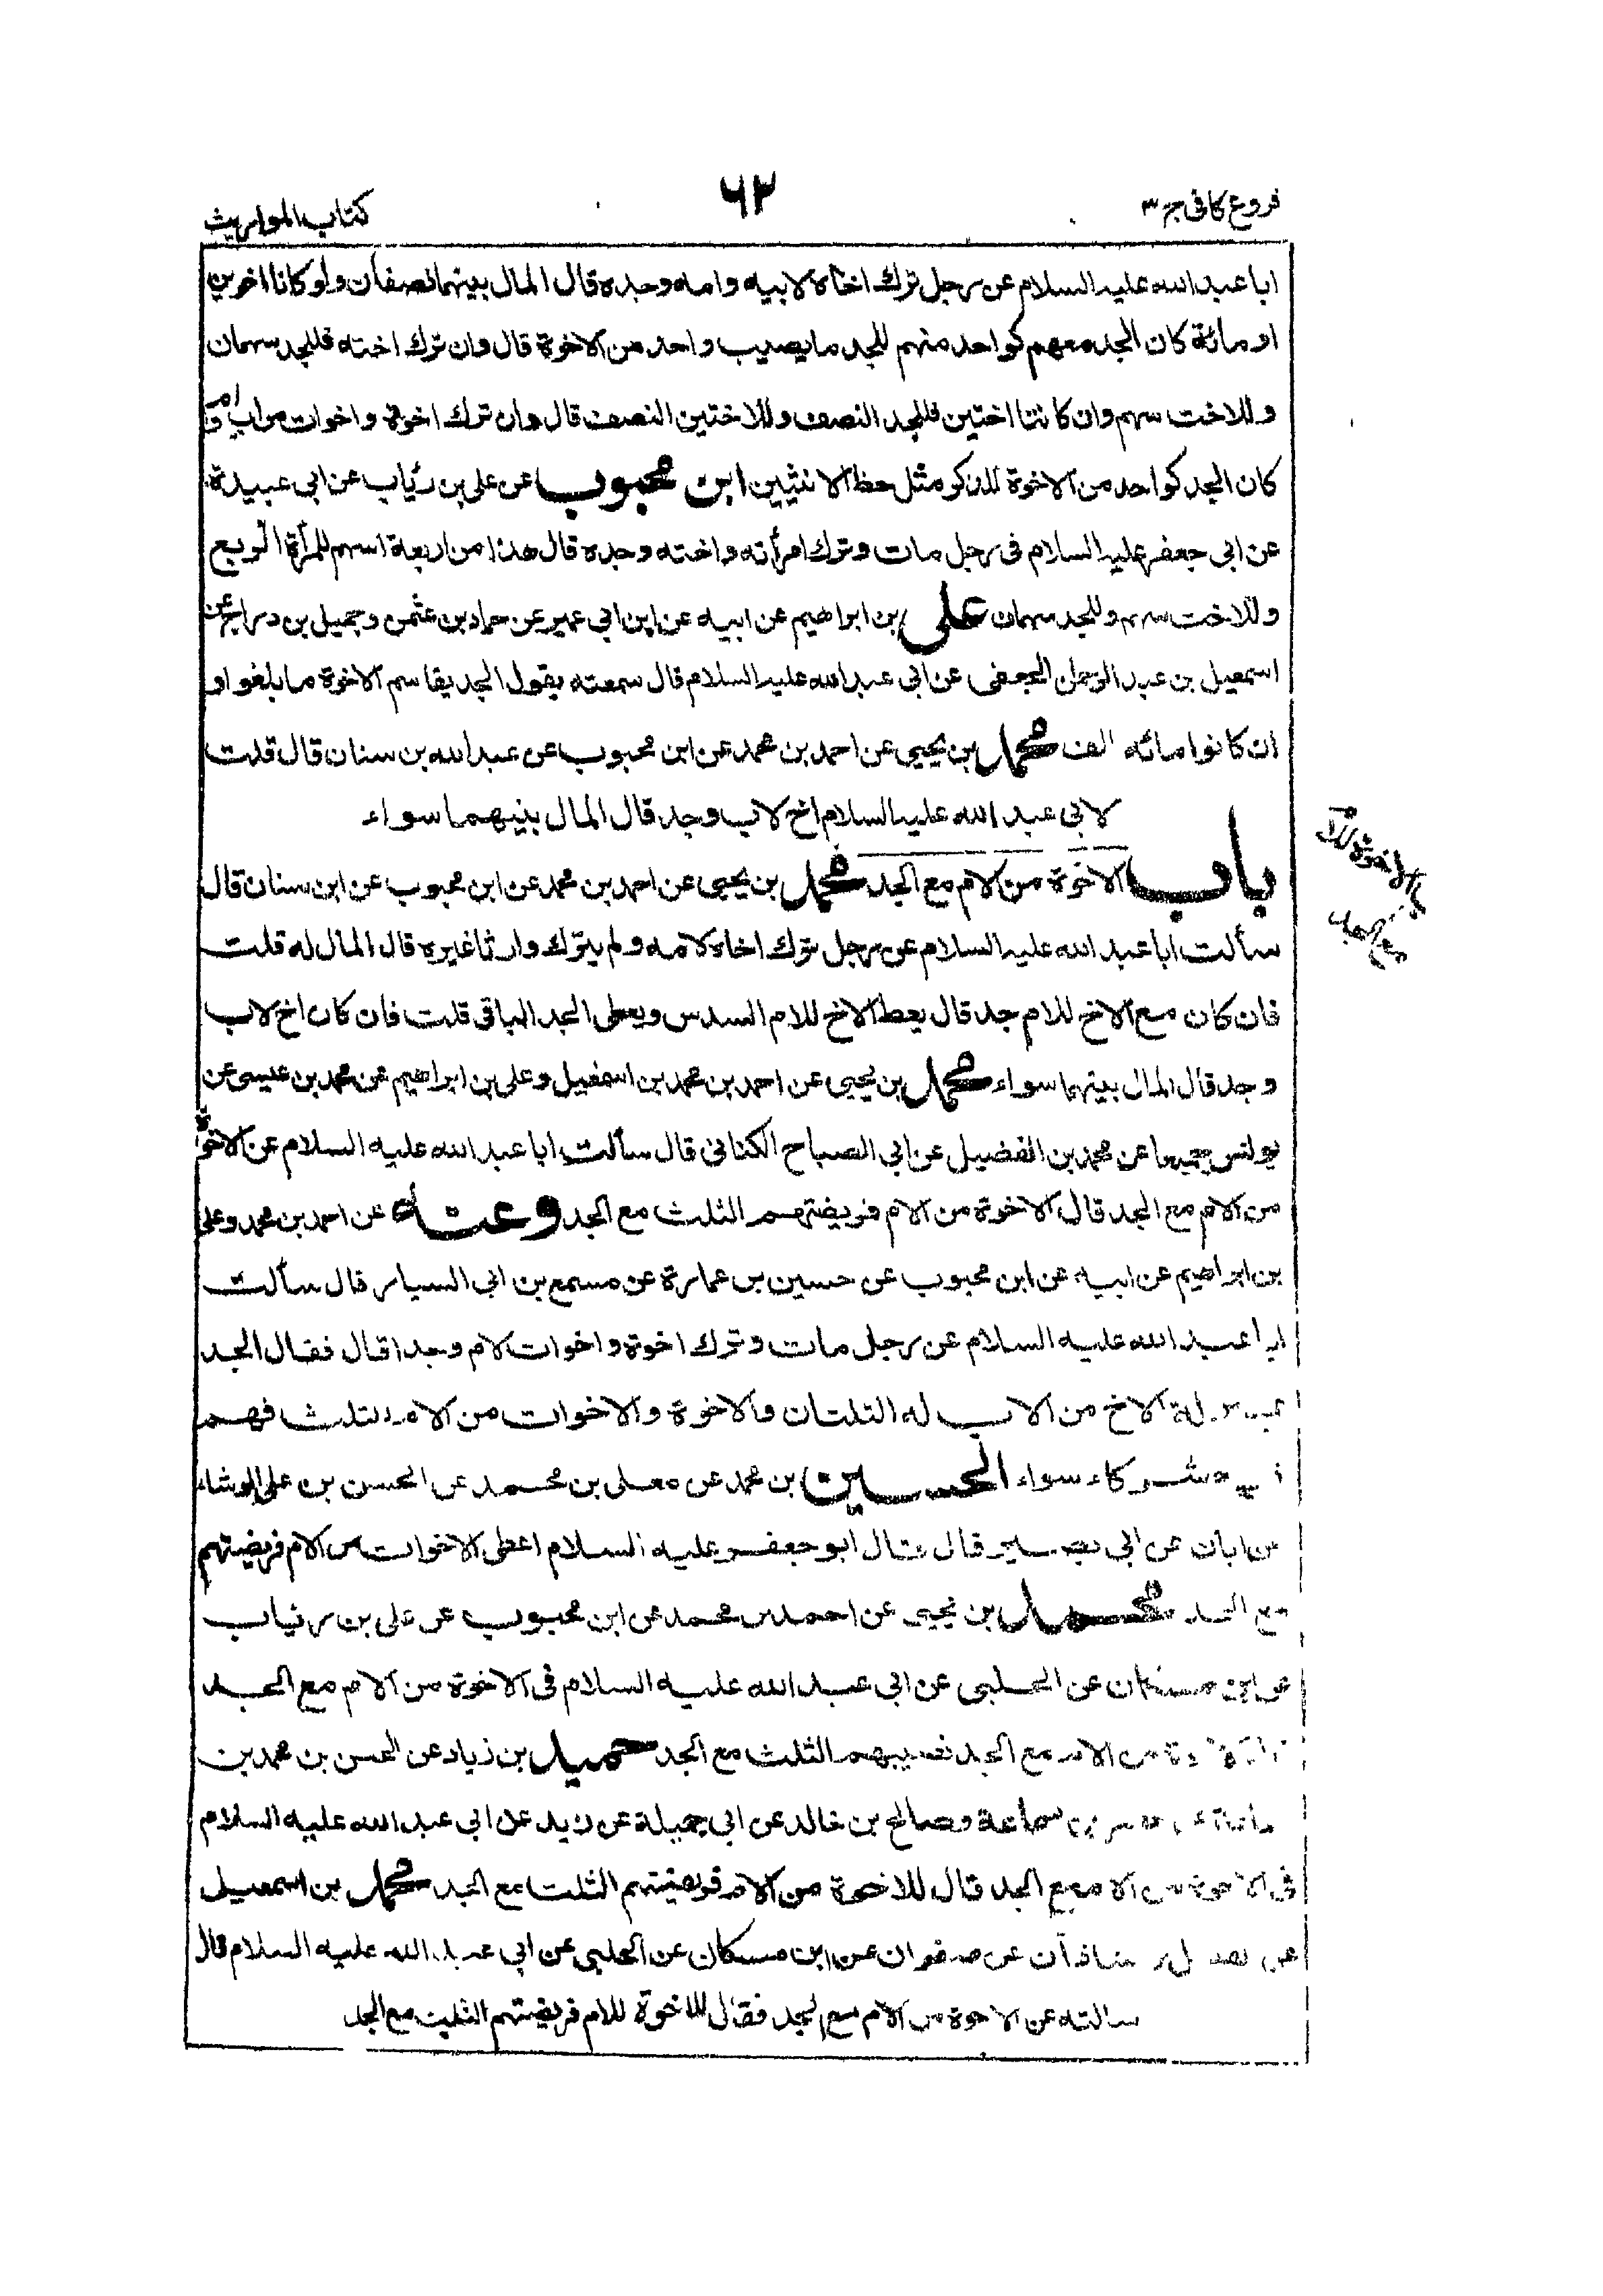 فروع كافى ج ٣
٦٢
كتاب المواريث
ابا عبد الله عليه السلام عن رجل ترك اخاه لابيه وامه وجده قال المال بينهما نصفان ولو كانا اخوين
او مائة كان الجد معهم كواحد منهم للجد ما يصيب واحد من الاخوة قال وان ترك اخته فللجد سهمان
وللاخت سهم وان كانتا اختين فللجد النصف وللاختين النصف قال وان ترك اخوة واخوات من اب وام
كان الجد كواحد من الاخوة للذكر مثل حظ الانثيين ابن محبوب عن على بن رئاب عن ابى عبيدة
عن ابى جعفر عليه السلام فى رجل مات وترك امرأته واخته وجده قال هذا من اربعة اسهم للمرأة الربع
وللاخت سهم وللجد سهمان على بن ابراهيم عن ابيه عن ابن ابى عمير عن حماد بن عثمن وجميل بن دراج عن
اسمعيل بن عبد الرحمن الجعفى عن ابى عبد الله عليه السلام قال سمعته يقول الجد يقاسم الاخوة ما بلغوا و
ان كانوا مائه الف محمد بن يحيى عن احمد بن محمد عن ابن محبوب عن عبد الله بن سنان قال قلت
لابى عبد الله عليه السلام اخ لاب وجد قال المال بينهما سواء
باب الاخوة من الام مع الجد محمد بن يحيى عن احمد بن محمد عن ابن محبوب عن ابن سنان قال
سألت ابا عبد الله عليه السلام عن رجل ترك اخاه لامه ولم يترك وارثا غيره قال المال له قلت
فان كان مع الاخ للام جد قال يعط الاخ للام السدس ويعطى الجد الباقى قلت فان كان اخ لاب
وجد قال المال بينهما سواء محمد بن يحيى عن احمد بن محمد بن اسمعيل وعلى بن ابراهيم عن محمد بن عيسى عن
يونس جميعا عن محمد بن الفضيل عن ابى الصباح الكنانى قال سألت ابا عبد الله عليه السلام عن الاخوة
من الام مع الجد قال الاخوة من الام فريضتهم الثلث مع الجد وعنه عن احمد بن محمد وعلى
بن ابراهيم عن ابيه عن ابن محبوب عن حسين بن عمارة عن مسمع بن ابى السيار قال سألت
ابا عبد الله عليه السلام عن رجل مات وترك اخوة واخوات لام وجدا قال فقال الجد
بمنزلة الاخ من الاب له الثلثان والاخوة والاخوات من الام الثلث فهم
فيه شركاء سواء الحسين بن محمد عن معلى بن محمد عن الحسن بن على الوشاء
عن ابان عن ابى بصير قال قال ابو جعفر عليه السلام اعطى الاخوات من الام فريضتهم
مع الجد محمد بن يحيى عن احمد بن محمد عن ابن محبوب عن على بن رئاب
عن ابن مسكان عن الحلبى عن ابى عبد الله عليه السلام فى الاخوة من الام مع الجد
من الام مع الجد نصيبهم الثلث مع الجد حميد بن زياد عن الحسن بن محمد بن
سماعة وصالح بن خالد عن ابى جميلة عن زيد عن ابى عبد الله عليه السلام
فى الاخوة من الام مع الجد قال للاخوة من الام فريضتهم الثلث مع الجد محمد بن اسمعيل
عن الفضل بن شاذان عن صفوان عن ابن مسكان عن الحلبى عن ابى عبد الله عليه السلام قال
سالته عن الاخوة من الام مع الجد فقال للاخوة للام فريضتهم الثلث مع الجد